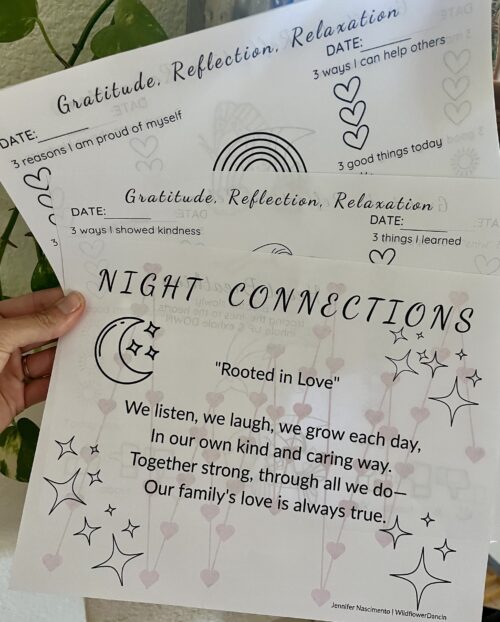 Gratitude, Reflection, Relaxation
DATE:
3 reasons I am proud of myself
DATE:
3 ways I can help others
3 good things today
Gratitude, Reflection, Relaxation
DATE:
3 ways I showed kindness
DATE:
3 things I learned
NIGHT CONNECTIONS
"Rooted in Love"
We listen, we laugh, we grow each day,
In our own kind and caring way.
Together strong, through all we do—
Our family's love is always true.
Jennifer Nascimento | WildflowerDancin